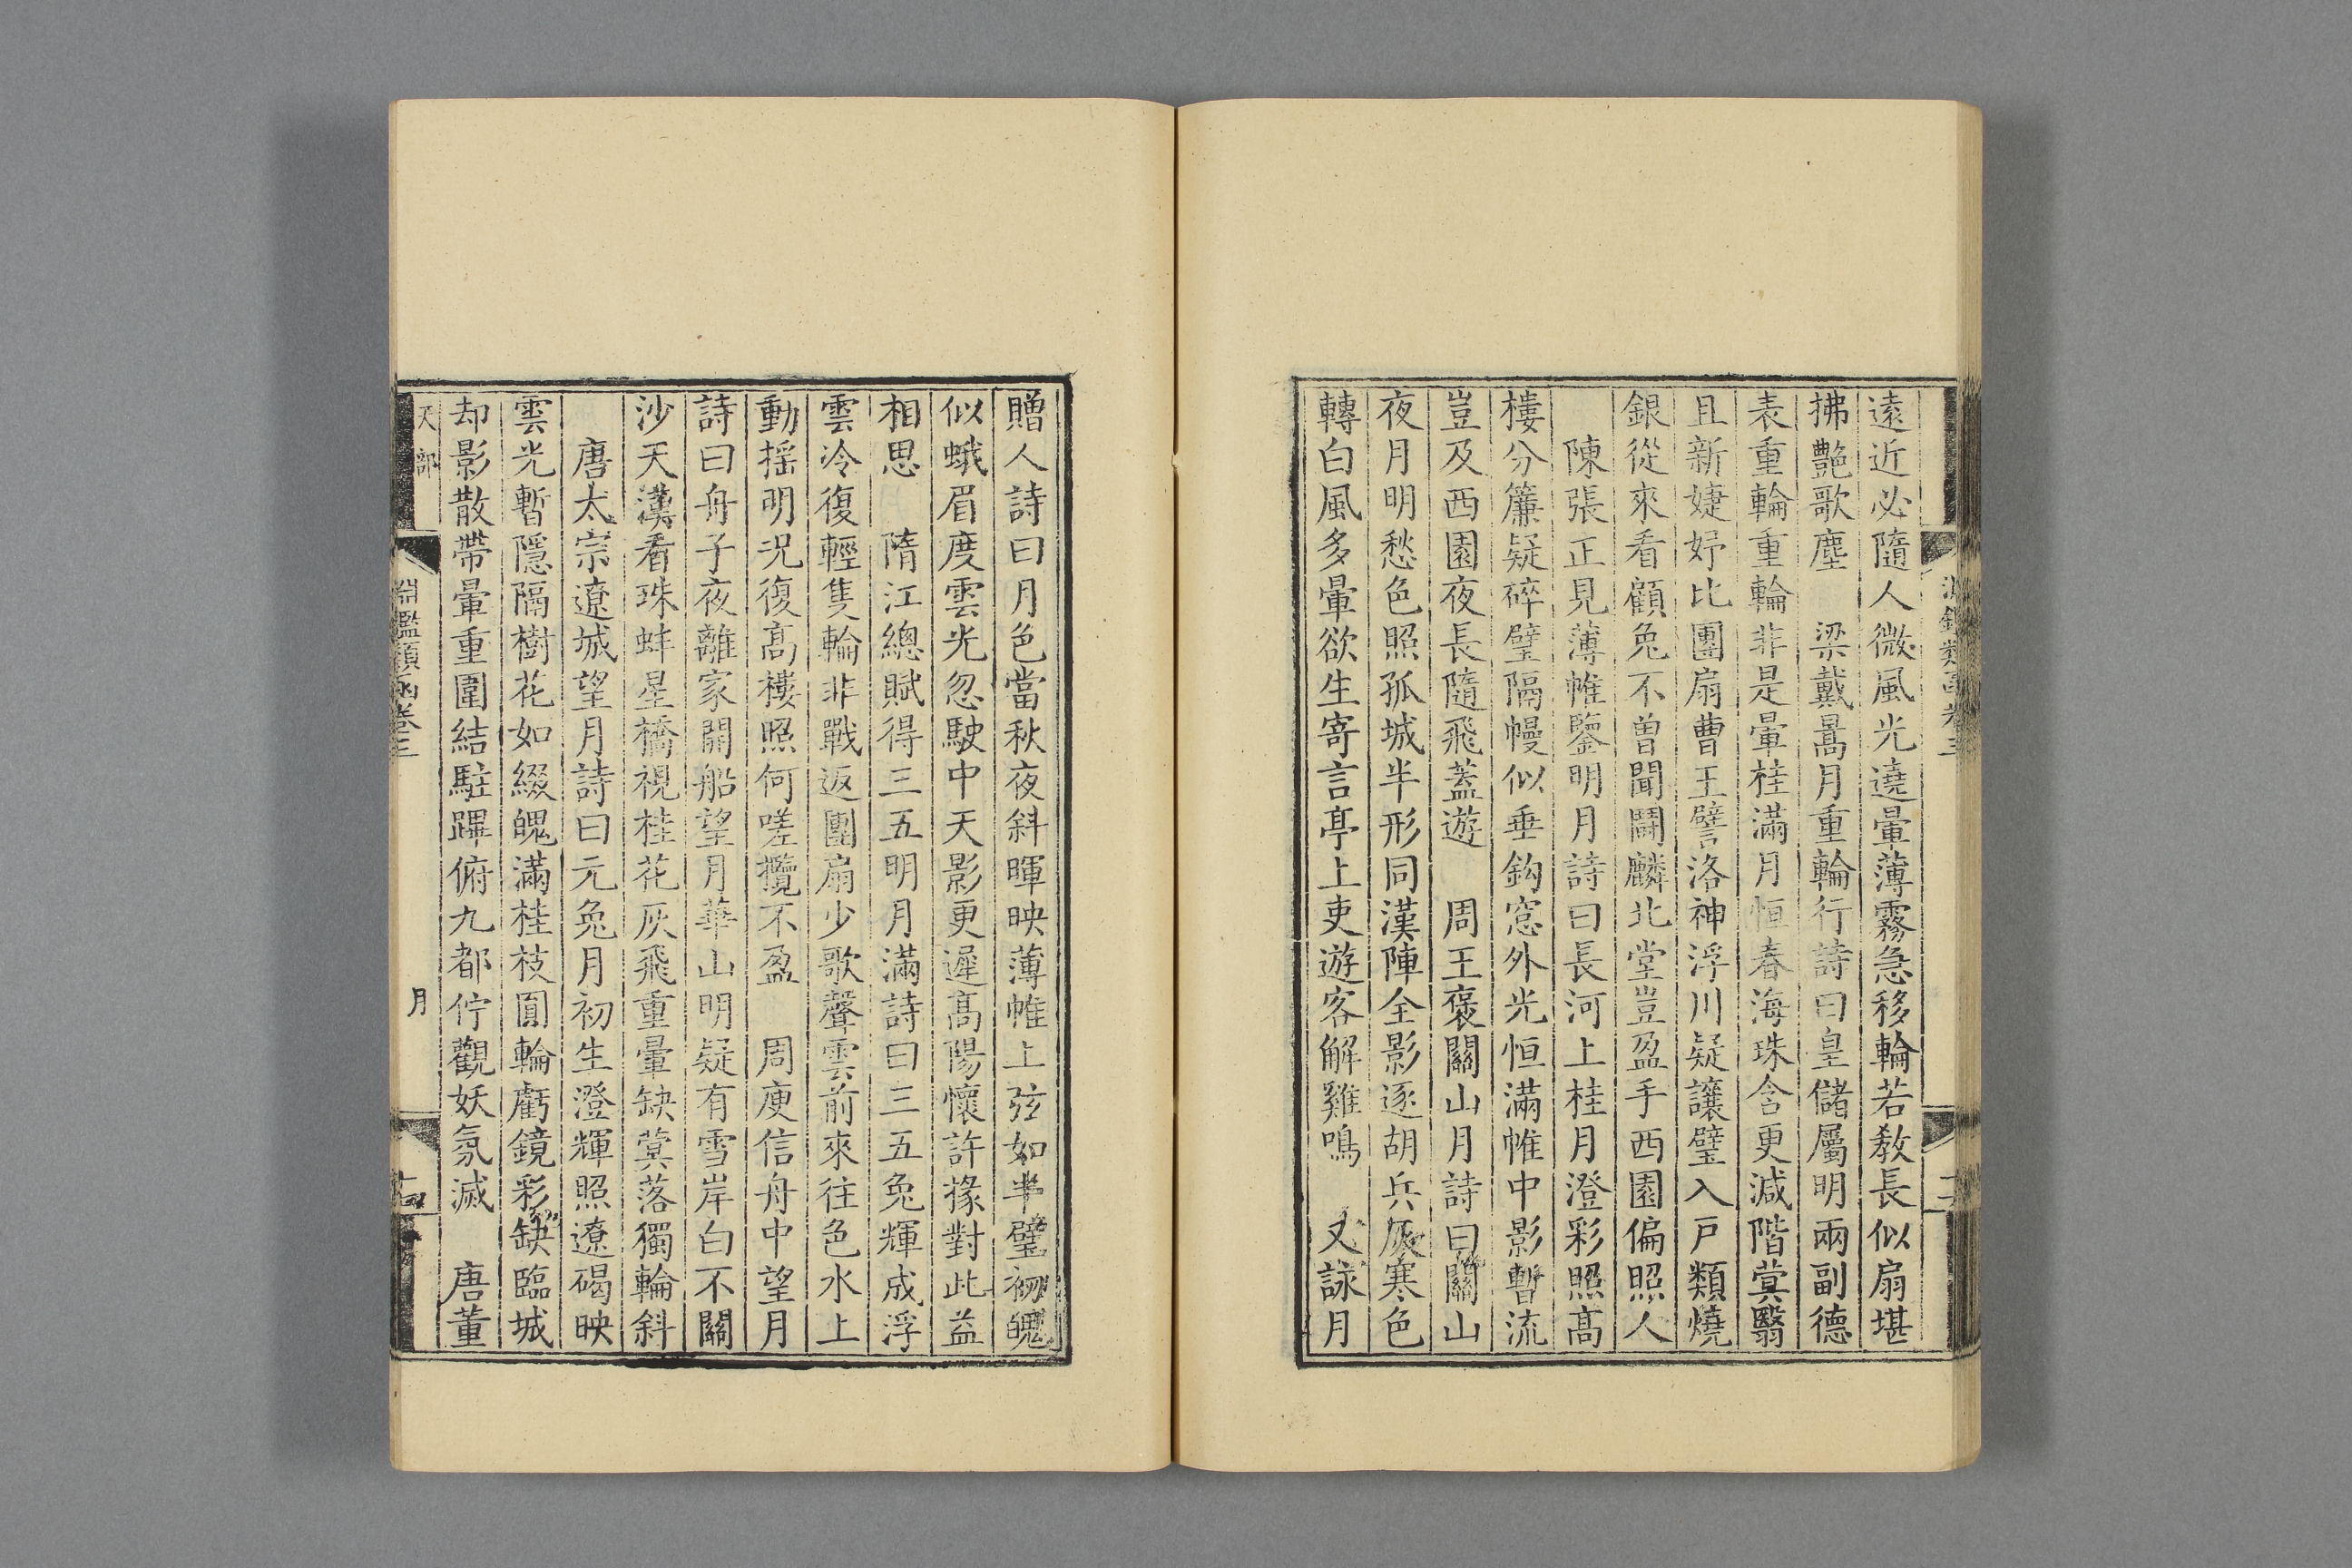 遠近必隨人微風光遶暈薄霧急移輪若敎長似扇堪
拂艷歌塵　梁戴暠月重輪行詩曰皇儲屬明兩副德
表重輪重輪非是暈桂滿月恒春海珠含更減階蓂翳
且新婕妤比團扇曹王譬洛神浮川疑讓璧入戸類燒
銀從來看顧兔不曽聞鬭麟北堂豈盈手西園偏照人
陳張正見薄帷鑒明月詩曰長河上桂月澄彩照髙
樓分簾疑碎璧隔幔似垂鈎窓外光恒滿帷中影暫流
豈及西園夜長隨飛蓋遊　周王褒關山月詩曰關山
夜月明愁色照孤城半形同漢陣全影逐胡兵灰寒色
轉白風多暈欲生寄言亭上吏遊客解雞鳴　又詠月
贈人詩曰月色當秋夜斜暉映薄帷上弦如半璧初魄
似蛾眉度雲光忽駛中天影更遲髙陽懷許掾對此益
相思　隋江總賦得三五明月滿詩曰三五兔輝成浮
雲冷復輕隻輪非戰返團扇少歌聲雲前來往色水上
動揺明况復髙樓照何嗟攬不盈　周庾信舟中望月
詩曰舟子夜離家開船望月華山明疑有雪岸白不關
沙天漢看珠蚌星橋視桂花灰飛重暈缺蓂落獨輪斜
唐太宗遼城望月詩曰元兔月初生澄輝照遼碣映
雲光暫隱隔樹花如綴魄滿桂枝圓輪虧鏡彩缺臨城
却影散帶暈重圍結駐蹕俯九都佇觀妖氛滅　唐董
天部
淵鑑類函卷三
月